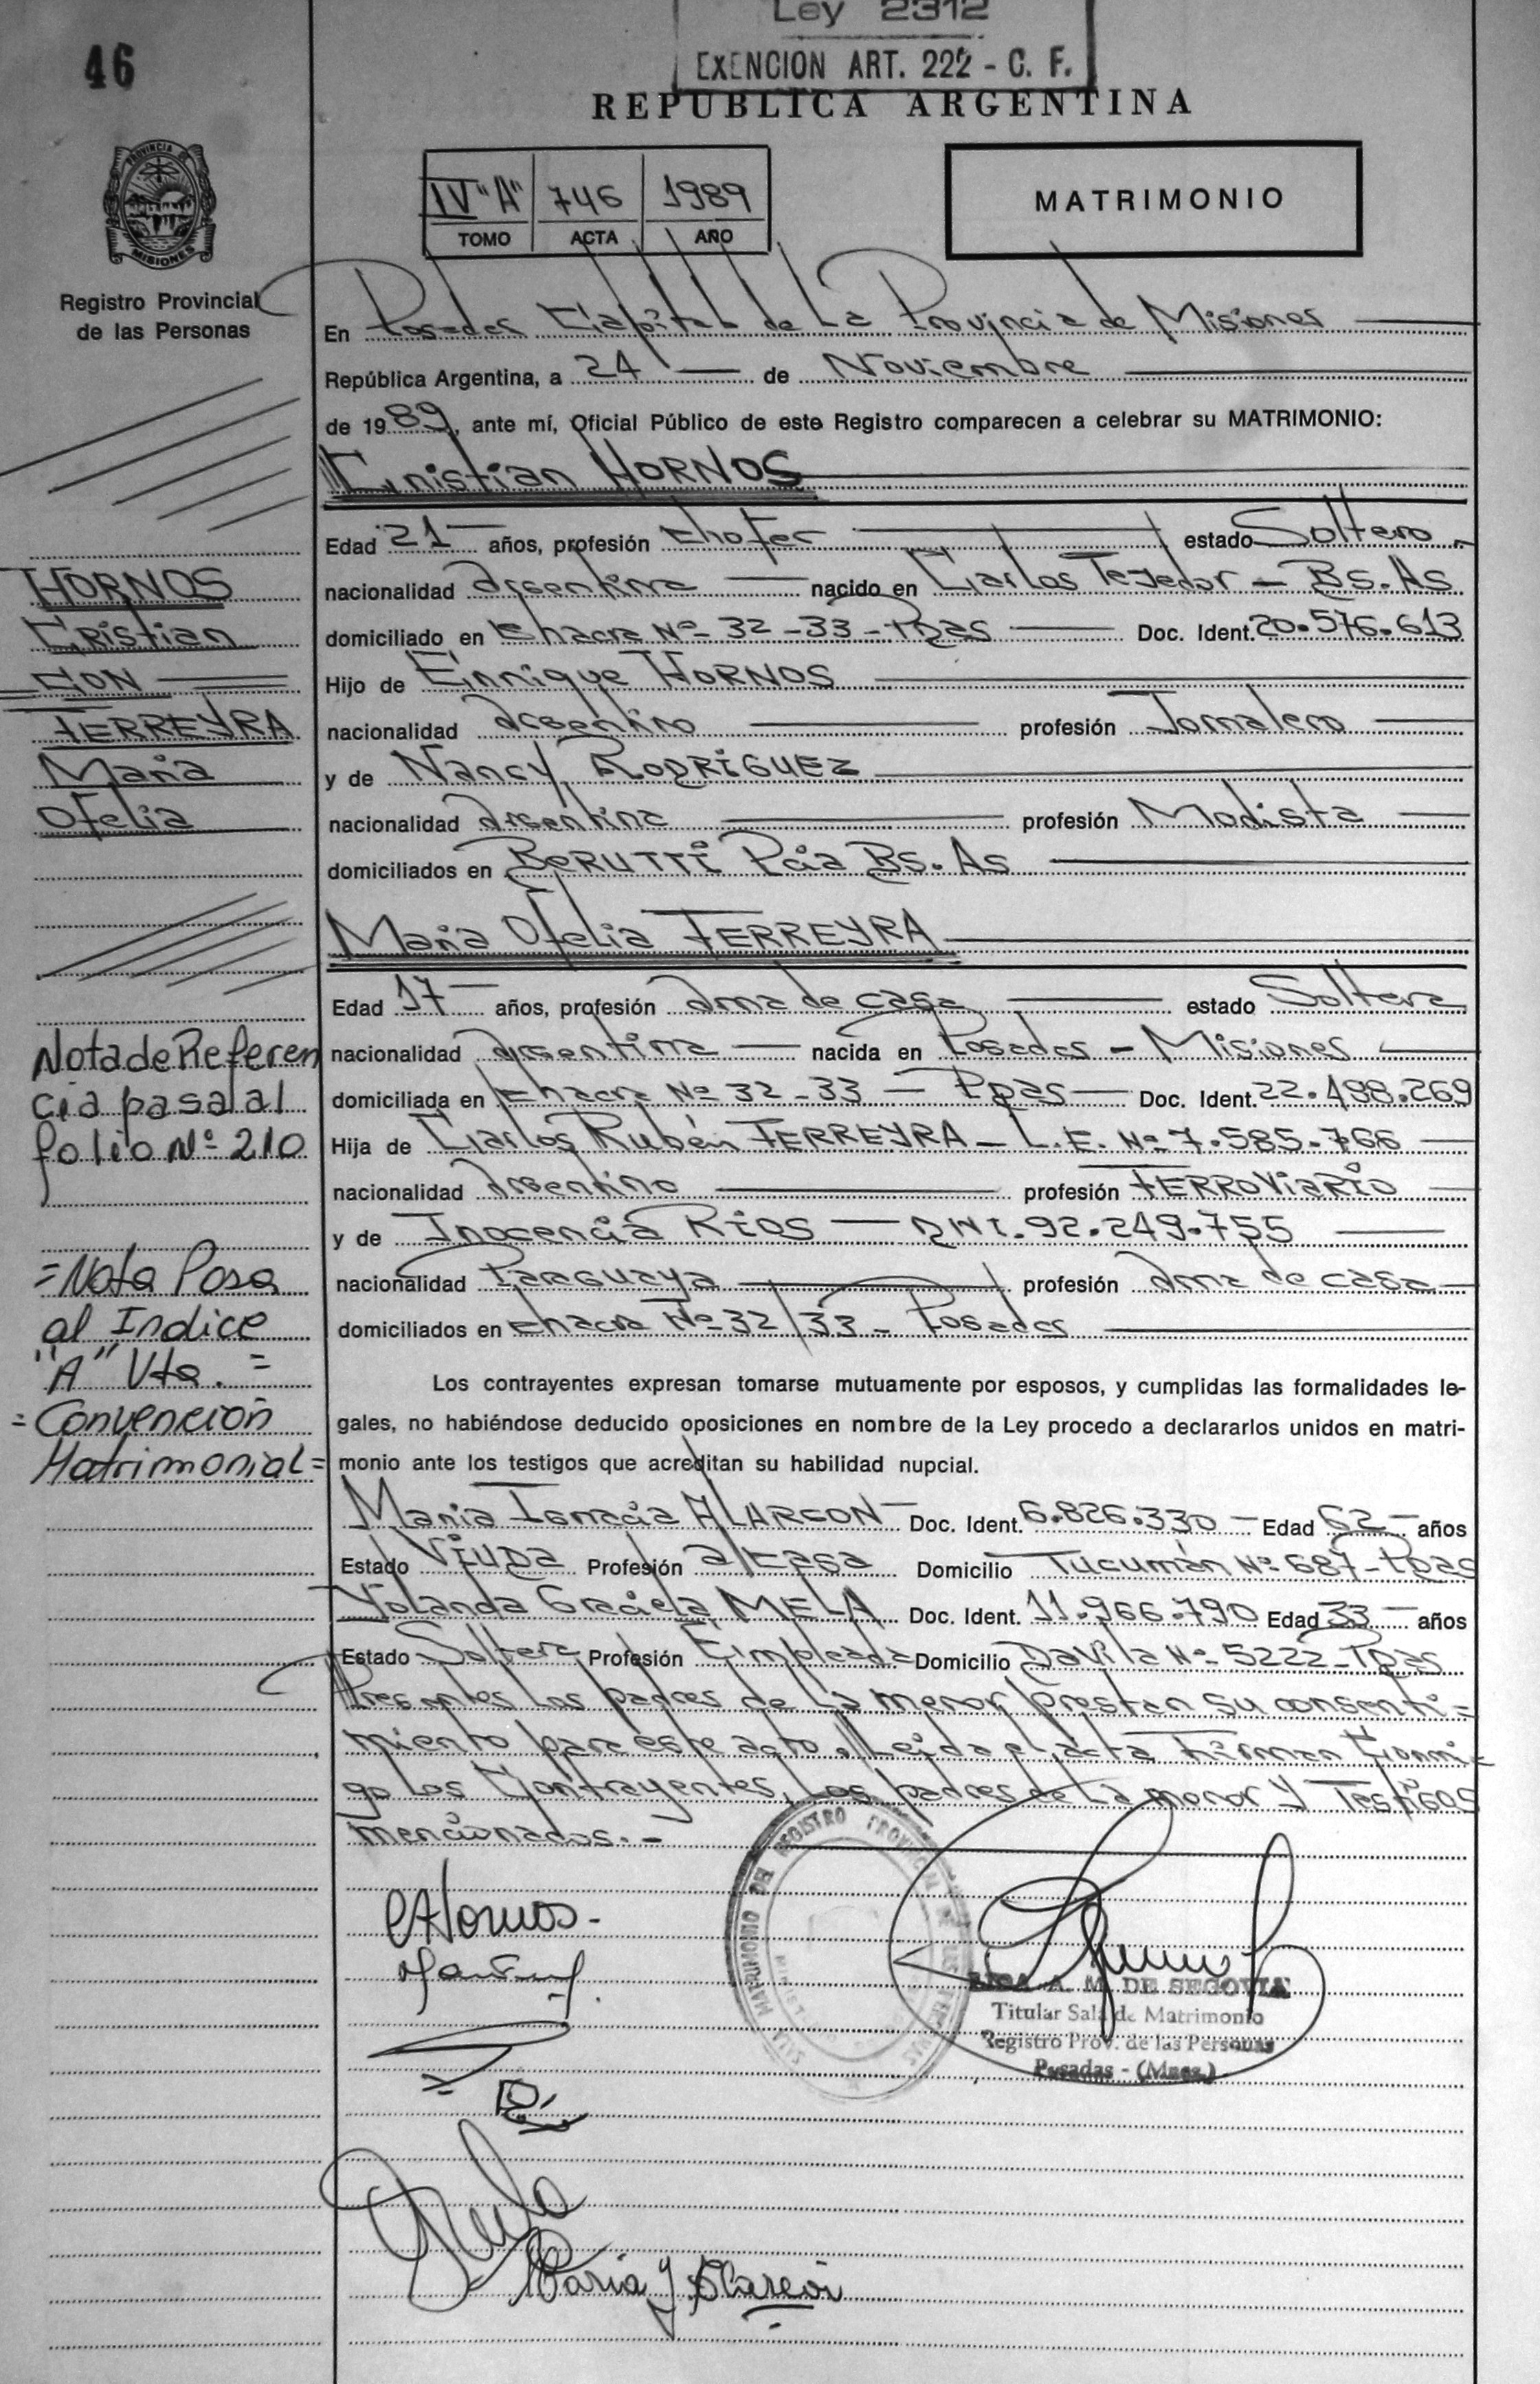 46
Ley 2312
EXENCION ART. 222 - C. F.
REPUBLICA ARGENTINA
PROVINCIA DE
MISIONES
Registro Provincial
de las Personas
IV "A" 746 1989
TOMO ACTA AÑO
MATRIMONIO
En Posadas Capital de La Provincia de Misiones
República Argentina, a 24 de Noviembre
de 1989, ante mí, Oficial Público de este Registro comparecen a celebrar su MATRIMONIO:
Cristian HORNOS
Edad 21 años, profesión chofer estado Soltero
nacionalidad Argentina nacido en Carlos Tejedor - Bs. As
domiciliado en Chacra Nº 32-33-Pdas Doc. Ident. 20.576.613
Hijo de Enrique HORNOS
nacionalidad Argentino profesión Jornalero
y de Nancy RODRIGUEZ
nacionalidad Argentina profesión Modista
domiciliados en BERUTTI Pcia Bs. As
María Ofelia FERREYRA
Edad 17 años, profesión Ama de casa estado Soltera
nacionalidad Argentina nacida en Posadas - Misiones
domiciliada en Chacra Nº 32-33 - Pdas Doc. Ident. 22.498.269
Hija de Carlos Rubén FERREYRA - L.E. Nº 7.585.766
nacionalidad Argentino profesión FERROViARIO
y de Inocencia RIOS - DNI. 92.249.755
nacionalidad Paraguaya profesión Ama de casa
domiciliados en Chacra Nº 32/33 - Posadas
HORNOS
Cristian
CON
FERREYRA
María
Ofelia
Nota de Referen
cia pasa al al
folio Nº 210
= Nota Pasa
al Indice
"A" Vta. =
= Convención
Matrimonial =
Los contrayentes expresan tomarse mutuamente por esposos, y cumplidas las formalidades le-
gales, no habiéndose deducido oposiciones en nombre de la Ley procedo a declararlos unidos en matri-
monio ante los testigos que acreditan su habilidad nupcial.
María Ignacia ALARCON Doc. Ident. 6.826.330 Edad 62 años
Estado VIUDA Profesión a/casa Domicilio Tucumán Nº 687-Pdas
Yolanda Graciela MELA Doc. Ident. 11.966.790 Edad 33 años
Estado Soltera Profesión Empleada Domicilio Davila Nº 5222-Pdas
Presentes Los padres de La menor prestan su consenti-
miento para este acto. Leida el acta Firman Conmi-
go Los Contrayentes, Los padres de La menor y Testigos
mencionados. -
CHornos -
SALA MATRIMONIO DEL REGISTRO PROVINCIAL DE LAS PERSONAS
A. M. DE SEGOVIA
Titular Sala de Matrimonio
Registro Prov. de las Personas
Posadas - (Mnes.)
Mela
María Y. Alarcón